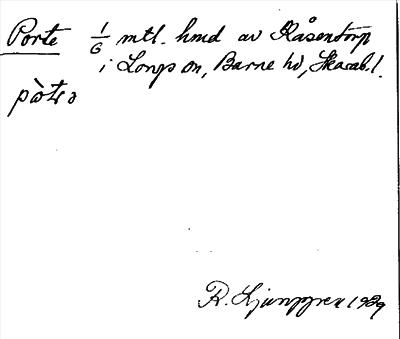 Porte 1/6 mtl. hmd av Råsentorp
i Longs sn, Barne hd, Skarab.l.
pòtʂə
R. Ljunggren 1929